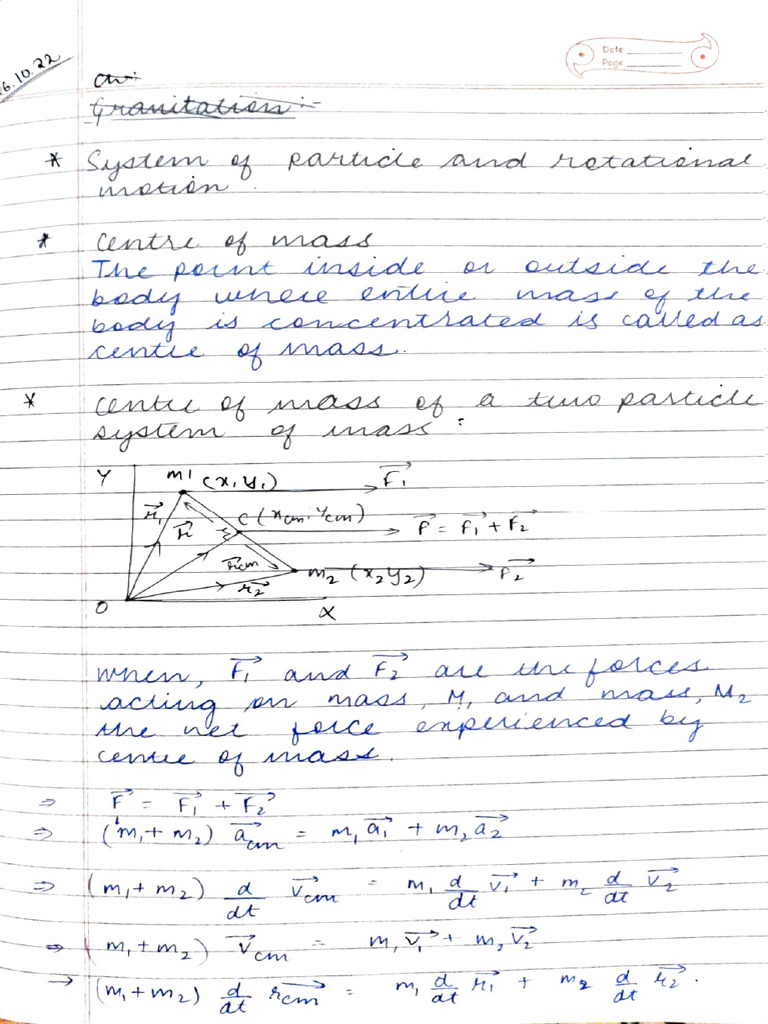 6.10.22
Date
Page
Ch:
Gravitation :-
* System of particle and rotational
motion.
* centre of mass
The point inside or outside the
body where entire mass of the
body is concentrated is called as
centre of mass.
* centre of mass of a two particle
system of mass :
Y m1 (x, y₁) F₁→
r₁→ r→ C (xcm, ycm) F→ = F₁→ + F₂→
rcm→
m₂ (x₂ y₂) F₂→
r₂→
O X
when, F₁→ and F₂→ are the forces
acting on mass, M, and mass, M₂
the net force experienced by
centre of mass.
⇒ F→ = F₁→ + F₂→
⇒ (m₁ + m₂) acm→ = m₁ a₁→ + m₂ a₂→
⇒ (m₁ + m₂) d/dt vcm→ = m₁ d/dt v₁→ + m₂ d/dt v₂→
⇒ (m₁ + m₂) vcm→ = m₁ v₁→ + m₂ v₂→
→ (m₁ + m₂) d/dt rcm→ = m₁ d/dt r₁→ + m₂ d/dt r₂→.